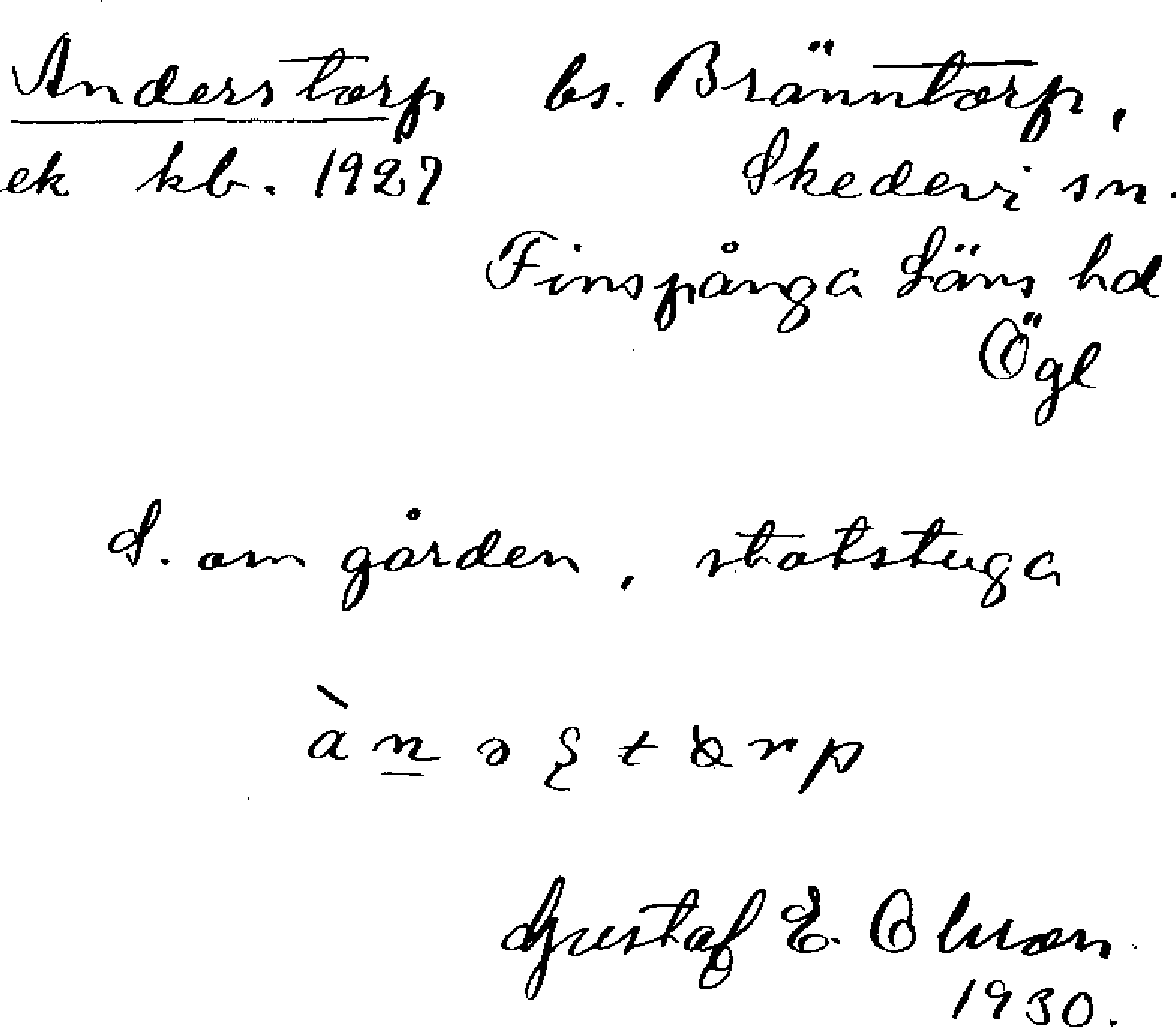 Anderstorp bs. Bränntorp,
ek kb. 1927 Skedevi sn.
Finspånga Läns hd
Ögl
S. om gården, statstuga
Gustaf E. Olsson
1930.